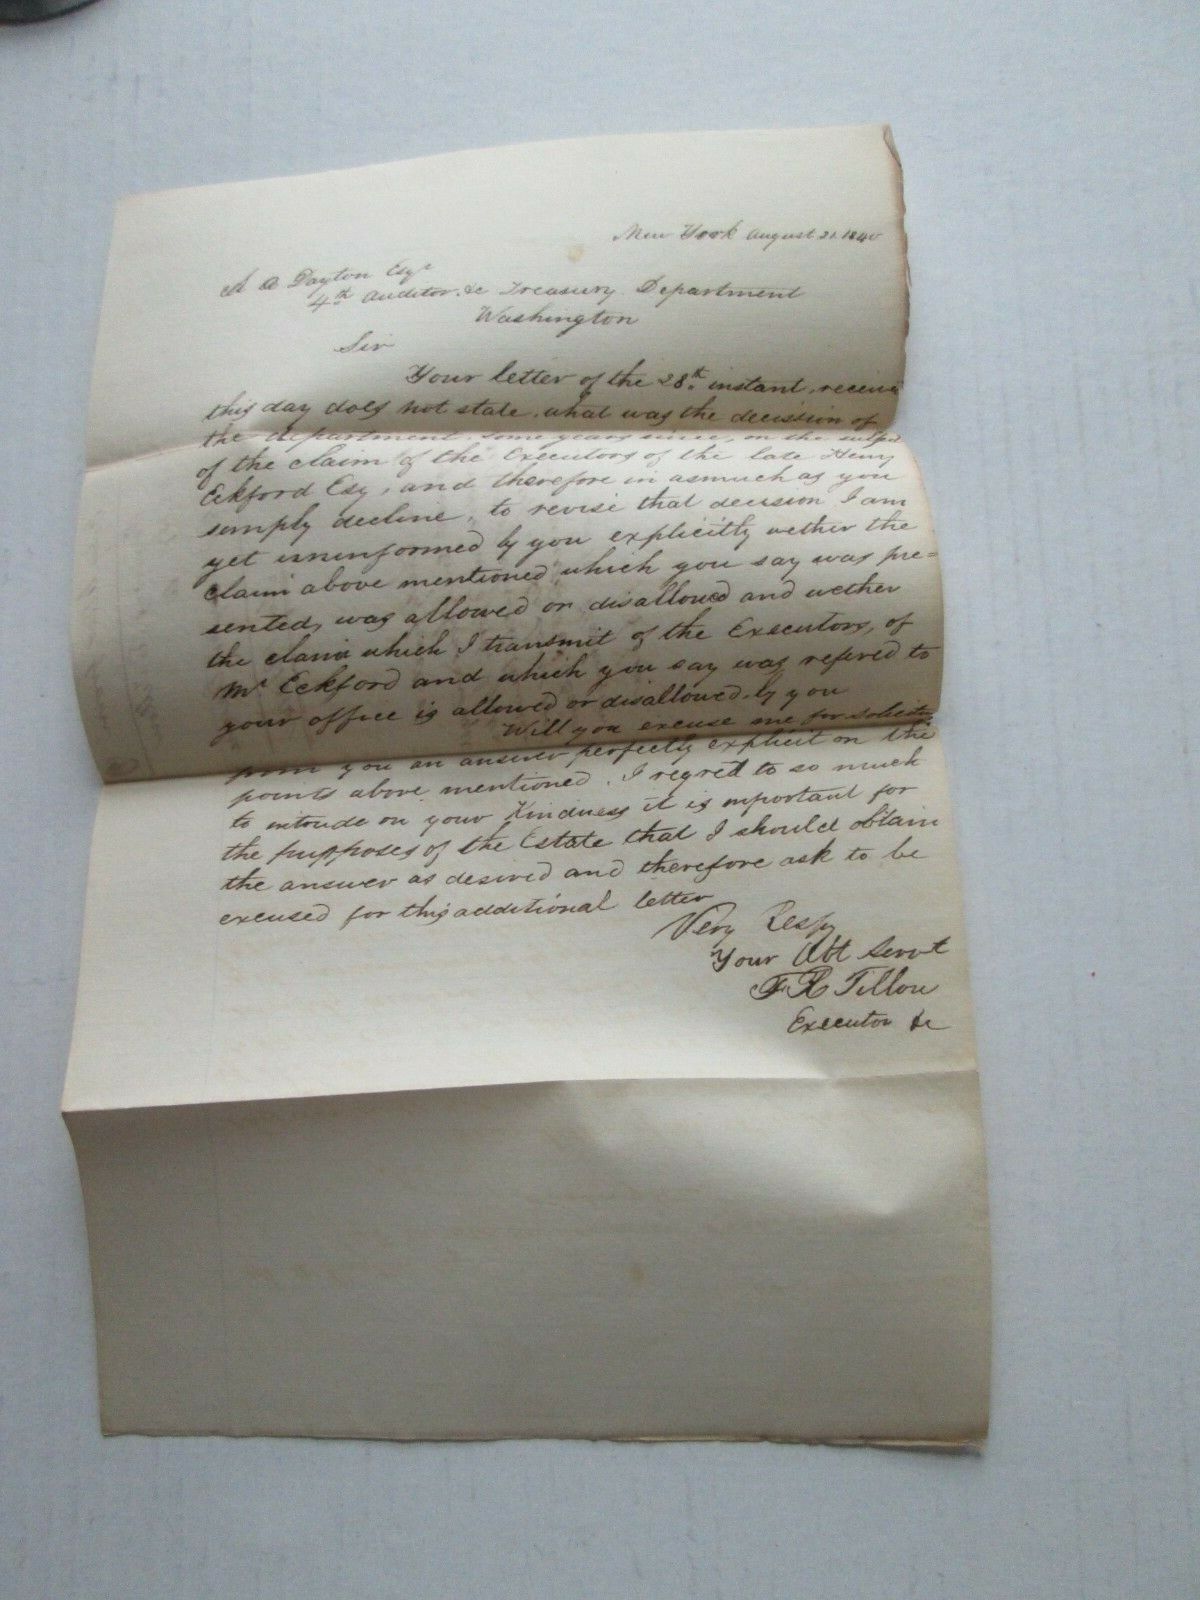 New York August 31. 1840
A O Dayton Esqr
4th Auditor &c Treasury Department
Washington
Sir
Your letter of the 28th instant, receive
this day does not state what was the decission of
the department some years since, on the subject
of the claim of the Executors of the late Henry
Eckford Esq, and therefore in asmuch as you
simply decline, to revise that decision I am
yet uninformed by you explicitly wether the
claim above mentioned which you say was pre=
sented, was allowed or disallowed and wether
the claim which I transmit of the Executors, of
Mr Eckford and which you say was refered to
your office is allowed or disallowed by you
Will you excuse me for soliciting
from you an answer perfectly explicit on the
points above mentioned. I regret to so much
to intrude on your Kindness it is important for
the purposes of the Estate that I should obtain
the answer as desired and therefore ask to be
excused for this additional letter
Very Respy
Your Obt Servt
F R Tillou
Executor &c